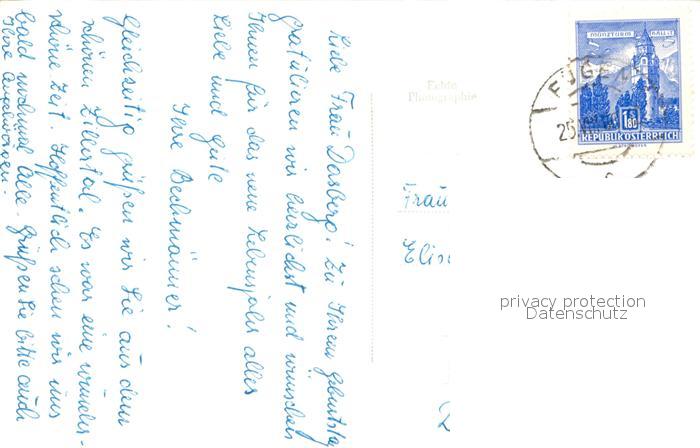 Liebe Frau Dasberg! Zu Ihrem Geburtstag
gratulieren wir herzlichst und wünschen
Ihnen für das neue Lebensjahr alles
Liebe und Gute
Ihre Bechmänner!
Gleichzeitig grüßen wir Sie aus dem
schönen Zillertal. Es war eine wunder-
schöne Zeit. Hoffentlich sehen wir uns
bald nochmal alle. Grüßen Sie bitte auch
Ihre
Echte
Photographie
MÜNZTURM HALL i. T.
S
1.80
REPUBLIK ÖSTERREICH
FÜGEN
25
Frau
Elis
privacy protection
Datenschutz